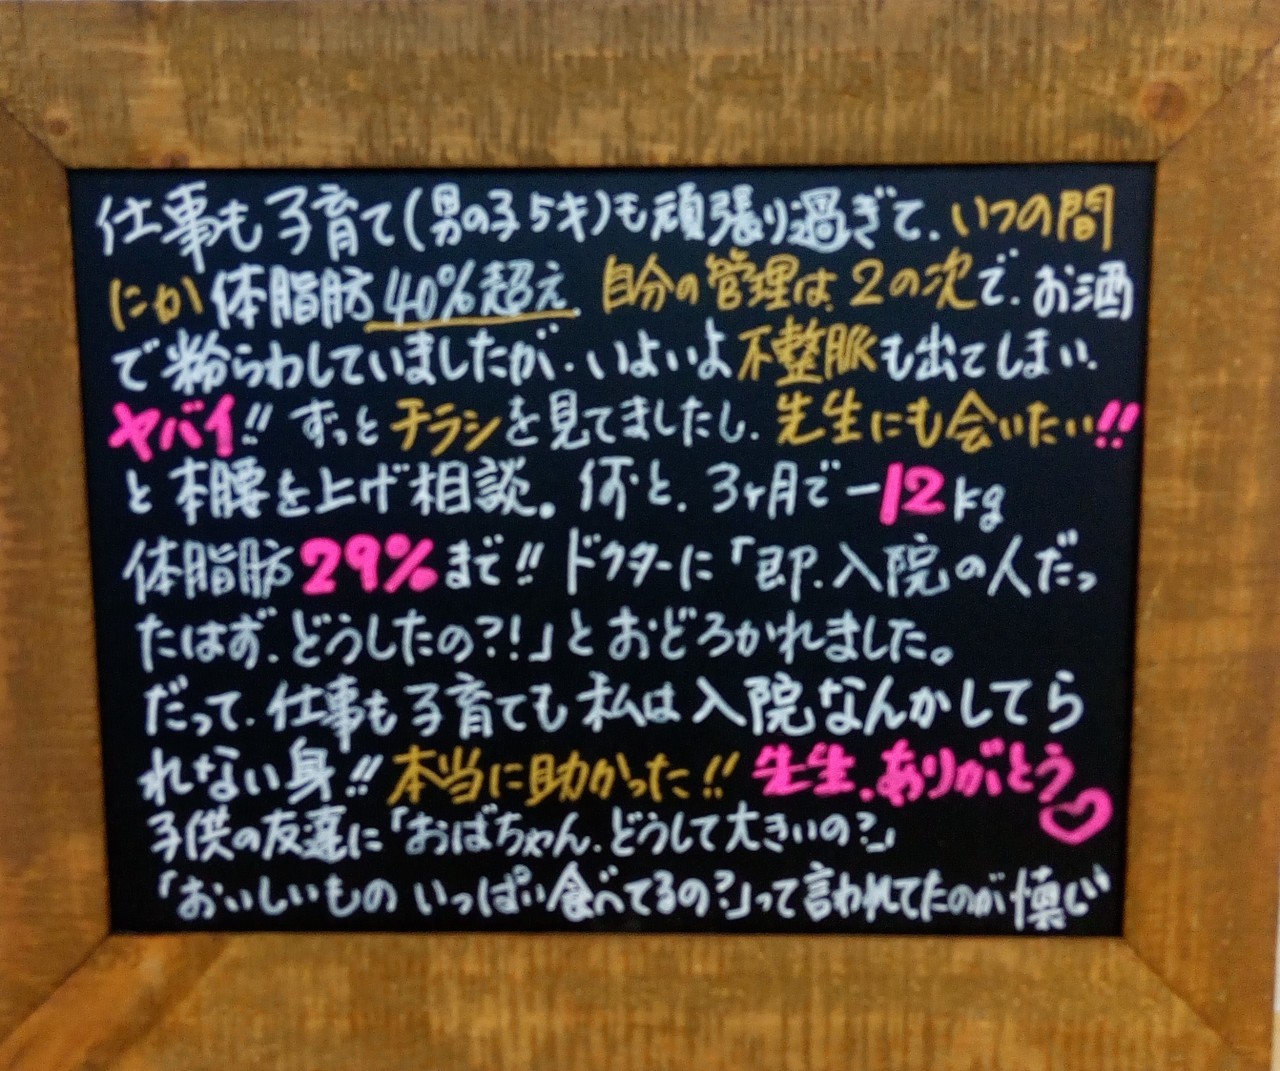 仕事も子育て(男の子5才)も頑張り過ぎて、いつの間
にか体脂肪40%超え。自分の管理は、2の次で、お酒
で紛らわしていましたが、いよいよ不整脈も出てしまい、
ヤバイ!! ずっとチラシを見てましたし、先生にも会いたい!!
と本腰を上げ相談。何と、3ヶ月で-12kg
体脂肪29%まで!! ドクターに「即、入院の人だっ
たはず、どうしたの?!」とおどろかれました。
だって、仕事も子育ても私は入院なんかしてら
れない身!! 本当に助かった!! 先生、ありがとう♡
子供の友達に「おばちゃん、どうして大きいの?」
「おいしいもの いっぱい食べてるの?」って言われてたのが懐しい